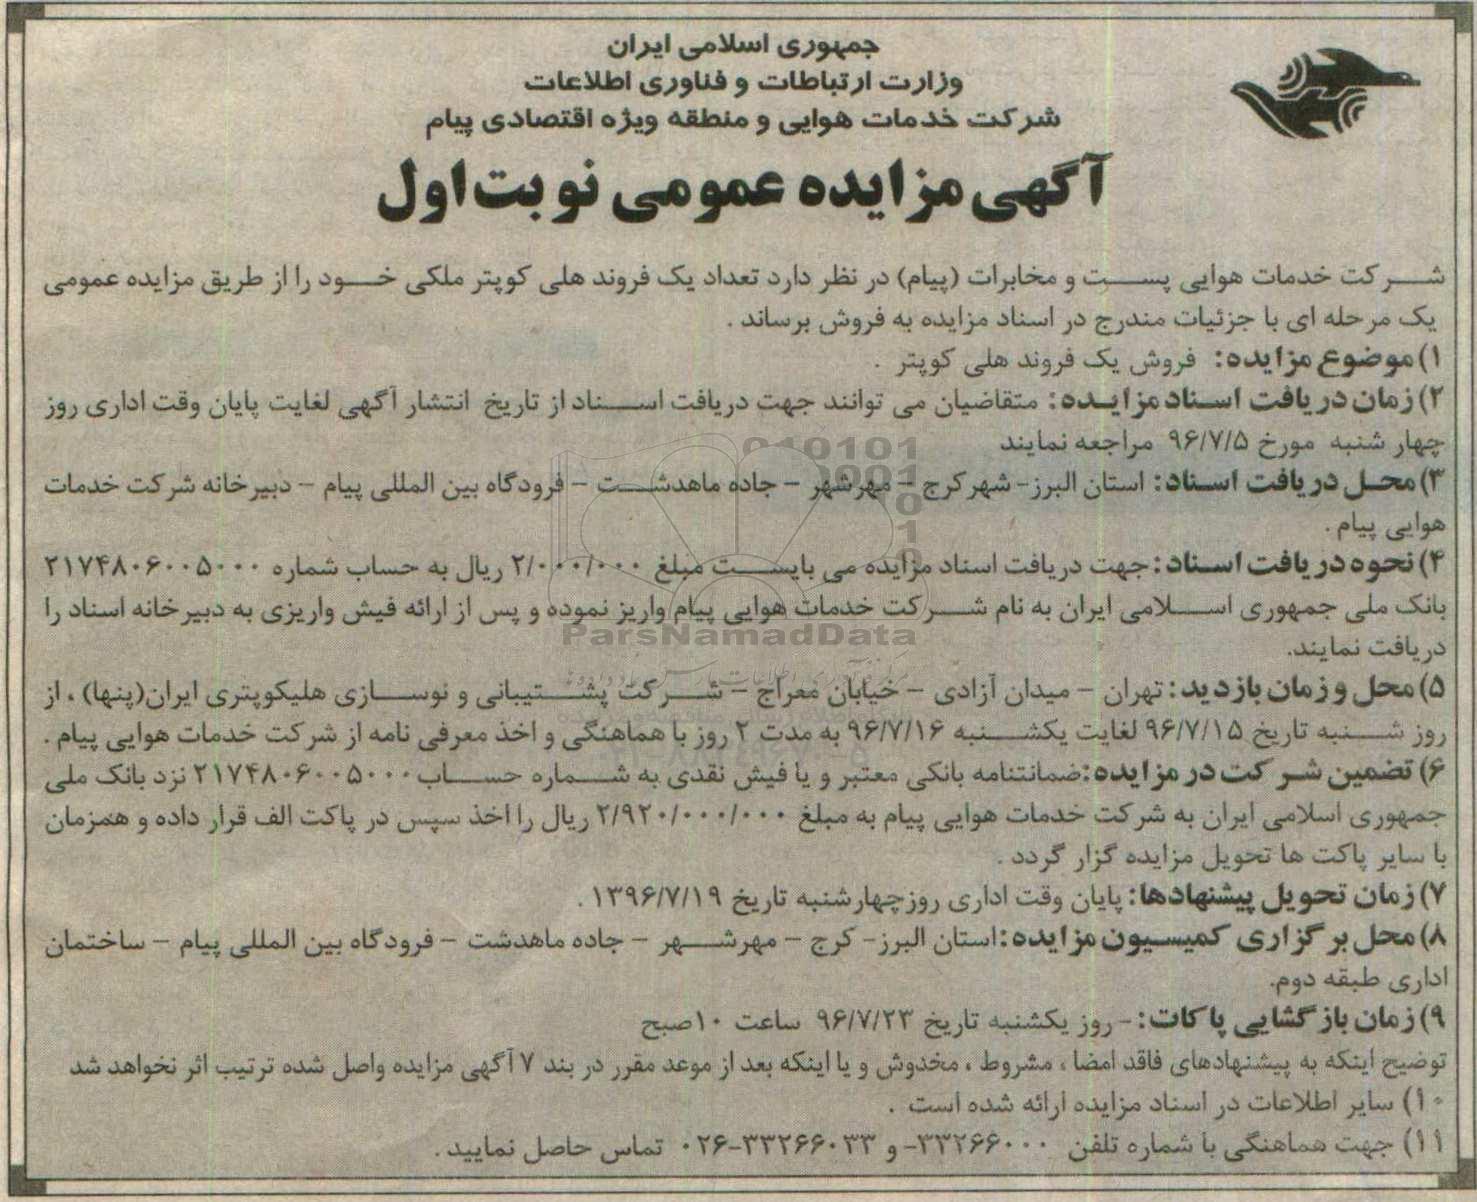 جمهوری اسلامی ایران
وزارت ارتباطات و فناوری اطلاعات
شرکت خدمات هوایی و منطقه ویژه اقتصادی پیام
آگهی مزایده عمومی نوبت اول
شرکت خدمات هوایی پست و مخابرات (پیام) در نظر دارد تعداد یک فروند هلی کوپتر ملکی خود را از طریق مزایده عمومی
یک مرحله ای با جزئیات مندرج در اسناد مزایده به فروش برساند .
۱) موضوع مزایده: فروش یک فروند هلی کوپتر .
۲) زمان دریافت اسناد مزایده: متقاضیان می توانند جهت دریافت اسناد از تاریخ انتشار آگهی لغایت پایان وقت اداری روز
چهار شنبه مورخ ۹۶/۷/۵ مراجعه نمایند
۳) محل دریافت اسناد: استان البرز- شهر کرج - مهرشهر - جاده ماهدشت - فرودگاه بین المللی پیام - دبیرخانه شرکت خدمات
هوایی پیام .
۴) نحوه دریافت اسناد: جهت دریافت اسناد مزایده می بایست مبلغ ۲/۰۰۰/۰۰۰ ریال به حساب شماره ۲۱۷۴۸۰۶۰۰۵۰۰۰
بانک ملی جمهوری اسلامی ایران به نام شرکت خدمات هوایی پیام واریز نموده و پس از ارائه فیش واریزی به دبیرخانه اسناد را
دریافت نمایند.
۵) محل و زمان بازدید: تهران - میدان آزادی - خیابان معراج - شرکت پشتیبانی و نوسازی هلیکوپتری ایران(پنها) ، از
روز شنبه تاریخ ۹۶/۷/۱۵ لغایت یکشنبه ۹۶/۷/۱۶ به مدت ۲ روز با هماهنگی و اخذ معرفی نامه از شرکت خدمات هوایی پیام .
۶) تضمین شرکت در مزایده: ضمانتنامه بانکی معتبر و یا فیش نقدی به شماره حساب ۲۱۷۴۸۰۶۰۰۵۰۰۰ نزد بانک ملی
جمهوری اسلامی ایران به شرکت خدمات هوایی پیام به مبلغ ۲/۹۲۰/۰۰۰/۰۰۰ ریال را اخذ سپس در پاکت الف قرار داده و همزمان
با سایر پاکت ها تحویل مزایده گزار گردد .
۷) زمان تحویل پیشنهادها: پایان وقت اداری روز چهارشنبه تاریخ ۱۳۹۶/۷/۱۹ .
۸) محل برگزاری کمیسیون مزایده: استان البرز- کرج - مهرشهر - جاده ماهدشت - فرودگاه بین المللی پیام - ساختمان
اداری طبقه دوم.
۹) زمان بازگشایی پاکات: - روز یکشنبه تاریخ ۹۶/۷/۲۳ ساعت ۱۰ صبح
توضیح اینکه به پیشنهادهای فاقد امضا ، مشروط ، مخدوش و یا اینکه بعد از موعد مقرر در بند ۷ آگهی مزایده واصل شده ترتیب اثر نخواهد شد
۱۰) سایر اطلاعات در اسناد مزایده ارائه شده است .
۱۱) جهت هماهنگی با شماره تلفن ۳۳۲۶۶۰۰۰- و ۳۳۲۶۶۰۳۳-۰۲۶ تماس حاصل نمایید .
ParsNamadData